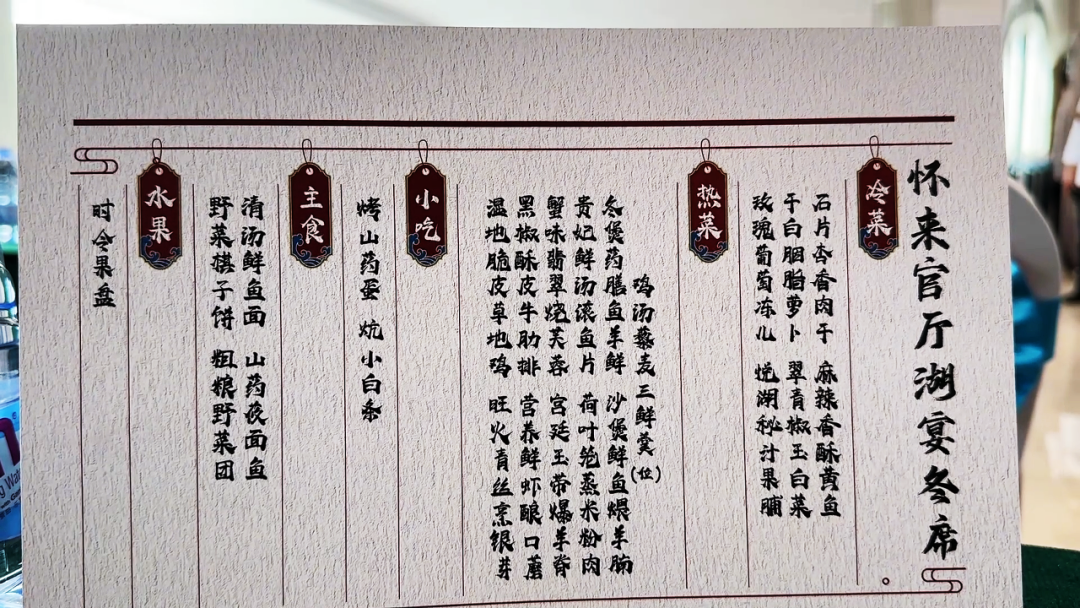 怀来官厅湖宴冬席
冷菜
石片杏香肉干 麻辣香酥黄鱼
干白胭脂萝卜 翠青椒玉白菜
玫瑰葡萄冻儿 悦湖秘汁果脯
热菜
鸡汤藜麦三鲜羹(位)
冬煲药膳鱼羊鲜 沙煲鲜鱼煨羊腩
贵妃鲜汤滚鱼片 荷叶笼蒸米粉肉
蟹味翡翠烧芙蓉 宫廷玉带爆羊脊
黑椒酥皮牛肋排 营养鲜虾酿口蘑
湿地脆皮草地鸡 旺火青丝烹银芽
小吃
烤山药蛋 炕小白条
主食
清汤鲜鱼面 山药莜面鱼
野菜棋子饼 粗粮野菜团
水果
时令果盘